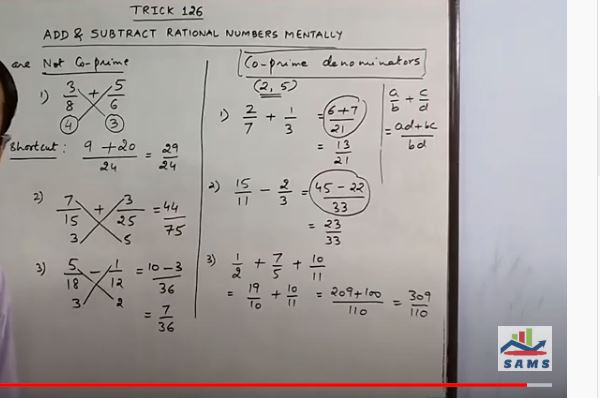 TRICK 126
ADD & SUBTRACT RATIONAL NUMBERS MENTALLY
are Not Co-prime
1) 3/8 + 5/6
4 3
Shortcut : 9 + 20 / 24 = 29/24
2) 7/15 + 3/25 = 44/75
3 5
3) 5/18 - 1/12 = 10 - 3 / 36
3 2
= 7/36
Co-prime denominators
(2, 5)
1) 2/7 + 1/3 = 6+7 / 21
= 13/21
2) 15/11 - 2/3 = 45 - 22 / 33
= 23/33
3) 1/2 + 7/5 + 10/11
= 19/10 + 10/11 = 209+100 / 110 = 309/110
a/b + c/d
= ad+bc / bd
SAMS